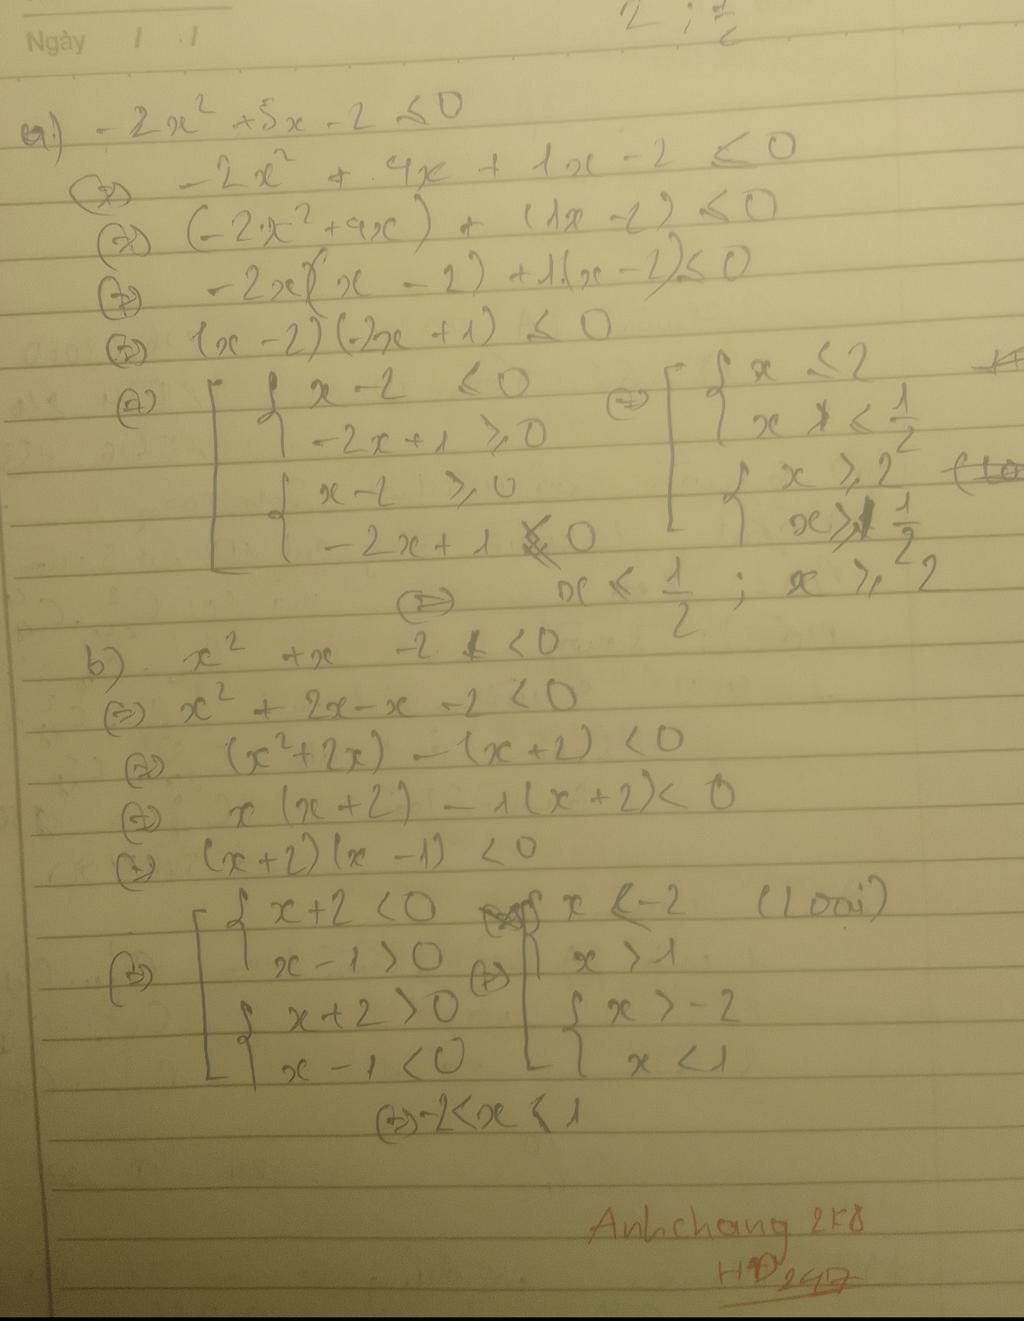 2 ; 1/2
Ngày / /
a) -2x² + 5x - 2 ≤ 0
(=) -2x² + 4x + 1x - 2 ≤ 0
(=) (-2x² + 4x) + (1x - 2) ≤ 0
(=) -2x(x - 2) + 1(x - 2) ≤ 0
(=) (x - 2)(-2x + 1) ≤ 0
(=) [ { x - 2 ≤ 0 (=) [ { x ≤ 2
-2x + 1 ≥ 0 x < 1/2
{ x - 2 ≥ 0 { x ≥ 2
-2x + 1 ≤ 0 x ≥ 1/2
(=) x ≤ 1/2 ; x ≥ 2
b) x² + x - 2 < 0
(=) x² + 2x - x - 2 < 0
(=) (x² + 2x) - (x + 2) < 0
(=) x(x + 2) - 1(x + 2) < 0
(=) (x + 2)(x - 1) < 0
(=) [ { x + 2 < 0 (=) [ { x < -2 (Loại)
x - 1 > 0 x > 1
{ x + 2 > 0 { x > -2
x - 1 < 0 x < 1
(=) -2 < x < 1
Anhchang 2K8
HD247